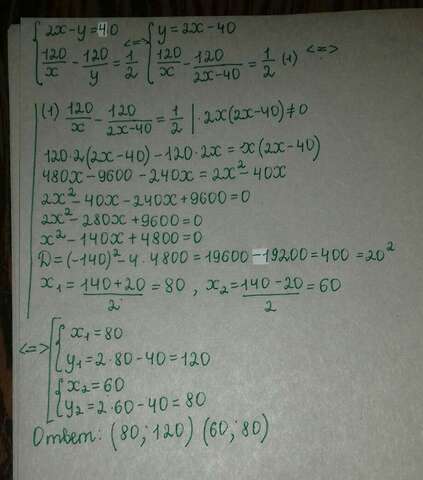 {2x-y=40 {y=2x-40
120/x - 120/y = 1/2 <=> 120/x - 120/(2x-40) = 1/2 (1) <=>
(1) 120/x - 120/(2x-40) = 1/2 | ·2x(2x-40)≠0
120·2(2x-40)-120·2x=x(2x-40)
480x-9600-240x=2x²-40x
2x²-40x-240x+9600=0
2x²-280x+9600=0
x²-140x+4800=0
D=(-140)²-4·4800=19600-19200=400=20²
x₁=(140+20)/2=80, x₂=(140-20)/2=60
<=> [{x₁=80
y₁=2·80-40=120
{x₂=60
y₂=2·60-40=80
Ответ: (80; 120) (60; 80)